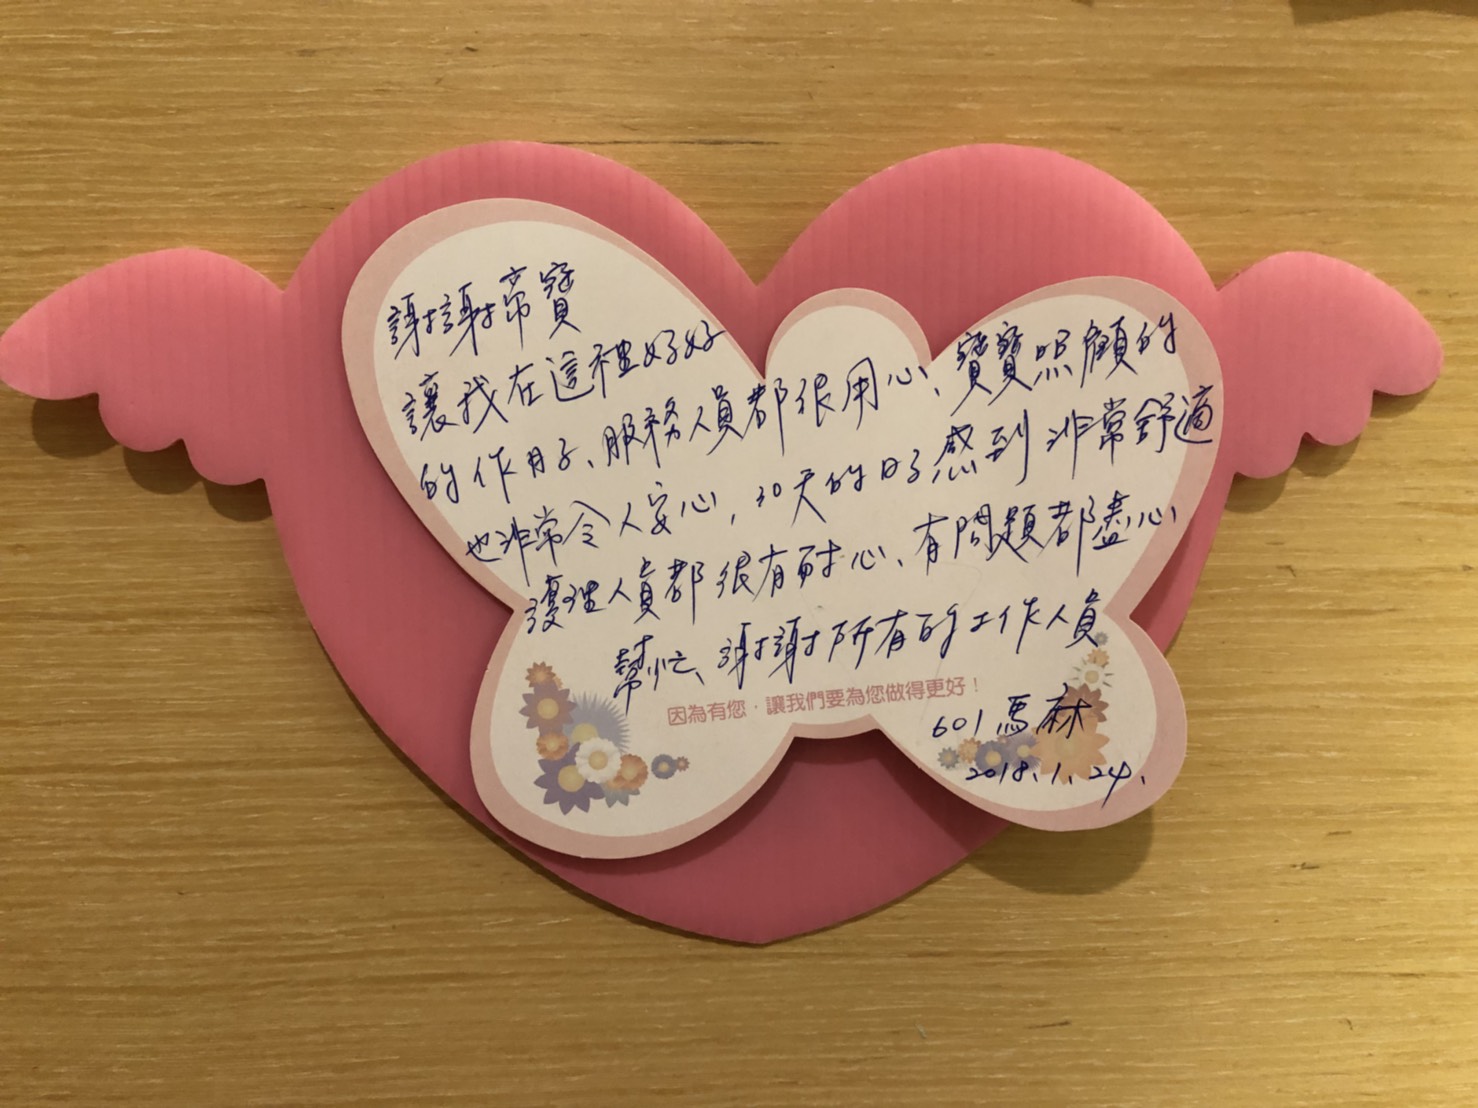 謝謝蒂寶
讓我在這裡好好
的作月子、服務人員都很用心、寶寶照顧的
也非常令人安心，30天的日子感到非常舒適
護理人員都很有耐心、有問題都盡心
幫忙、謝謝所有的工作人員
因為有您，讓我們要為您做得更好！
601馬麻
2018.1.24.